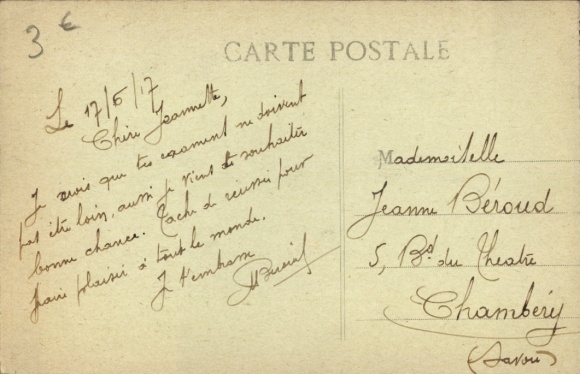 3 €
CARTE POSTALE
Le 17/6/17
Chère Jeannette,
Je crois que tes examens ne doivent
pas être loin, aussi je viens te souhaiter
bonne chance. Tache de réussir pour
faire plaisir à tout le monde.
Je t'embrasse
Mademoiselle
Jeanne Béroud
5, Bd du Theatre
Chambéry
(Savoie)